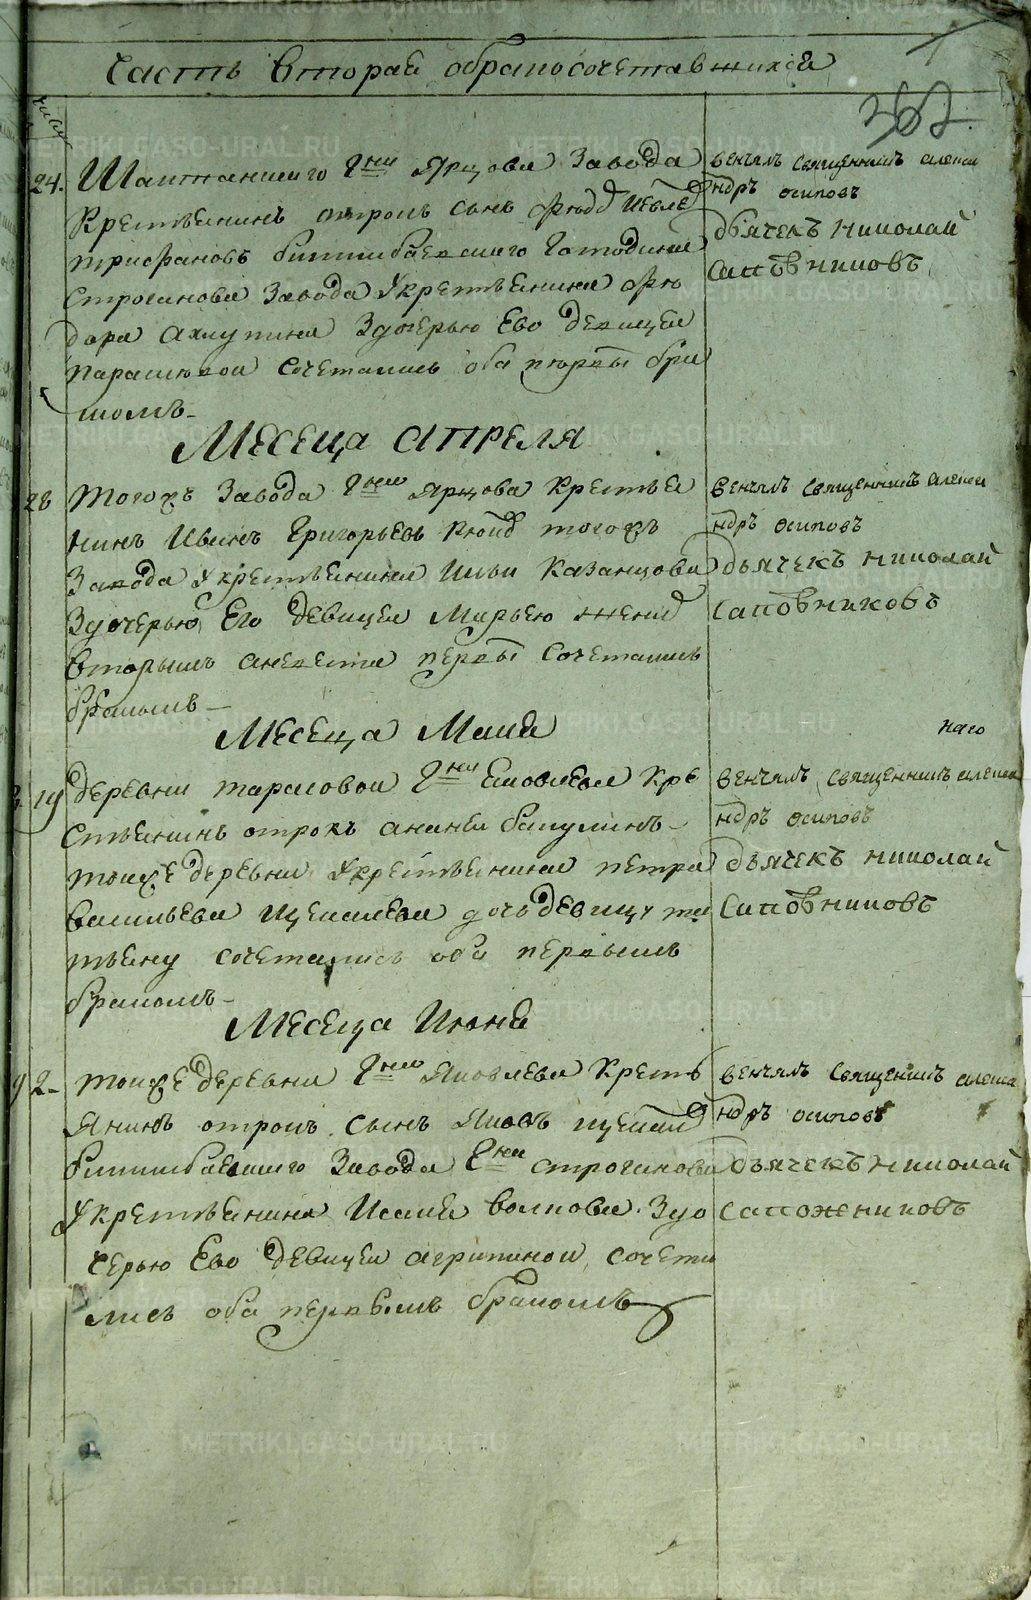 часть вторая обрапосочетавшихся
362
24. Шайтанского Гна Ярцова Завода
крестьянинъ отрокъ сынъ
трифановъ билимбаевского Господина
Строганова Завода Укрестьянина Фіо
дара Ахлупина Здочерью Ево девицеи
парасковои сочетались оба первы бра
комъ
венчалъ священникъ алекса
ндръ осиповъ
дьячекъ николай
Сапожниковъ
Месеца апреля
28 тогожъ Завода Гна Ярцова крестья
нинъ Иванъ Григорьевъ тогожъ
Завода Укрестьянина Ильи Казанцова
Здочерью Его девицеи Марьею
вторымъ аневеста первы сочетались
бракомъ
венчалъ священникъ алекса
ндръ осиповъ
дьячекъ николай
сапожниковъ
Месеца Маия
наго
19 деревни тарасовои Гна Яковлева кре
стьянинъ отрокъ ананья бакулинъ
тоиже деревни Укрестьянина петра
васильева Щекалева дочь девицу та
тьяну сочетались оба первымъ
бракомъ
венчалъ священникъ алекса
ндръ осиповъ
дьячекъ николай
Сапожниковъ
Месеца Июня
2 тоиже деревни Гна Яковлева кресть
янинъ отрокъ сынъ Яковъ
билимбаевского Завода Гна строганова
Укрестьянина Исакия волкова Здо
черью Ево девицеи агрипинои сочета
лись оба первымъ бракомъ
венчалъ священникъ алекса
ндръ осиповъ
дьячекъ николай
сапожениковъ
METRIKI.GASO-URAL.RU